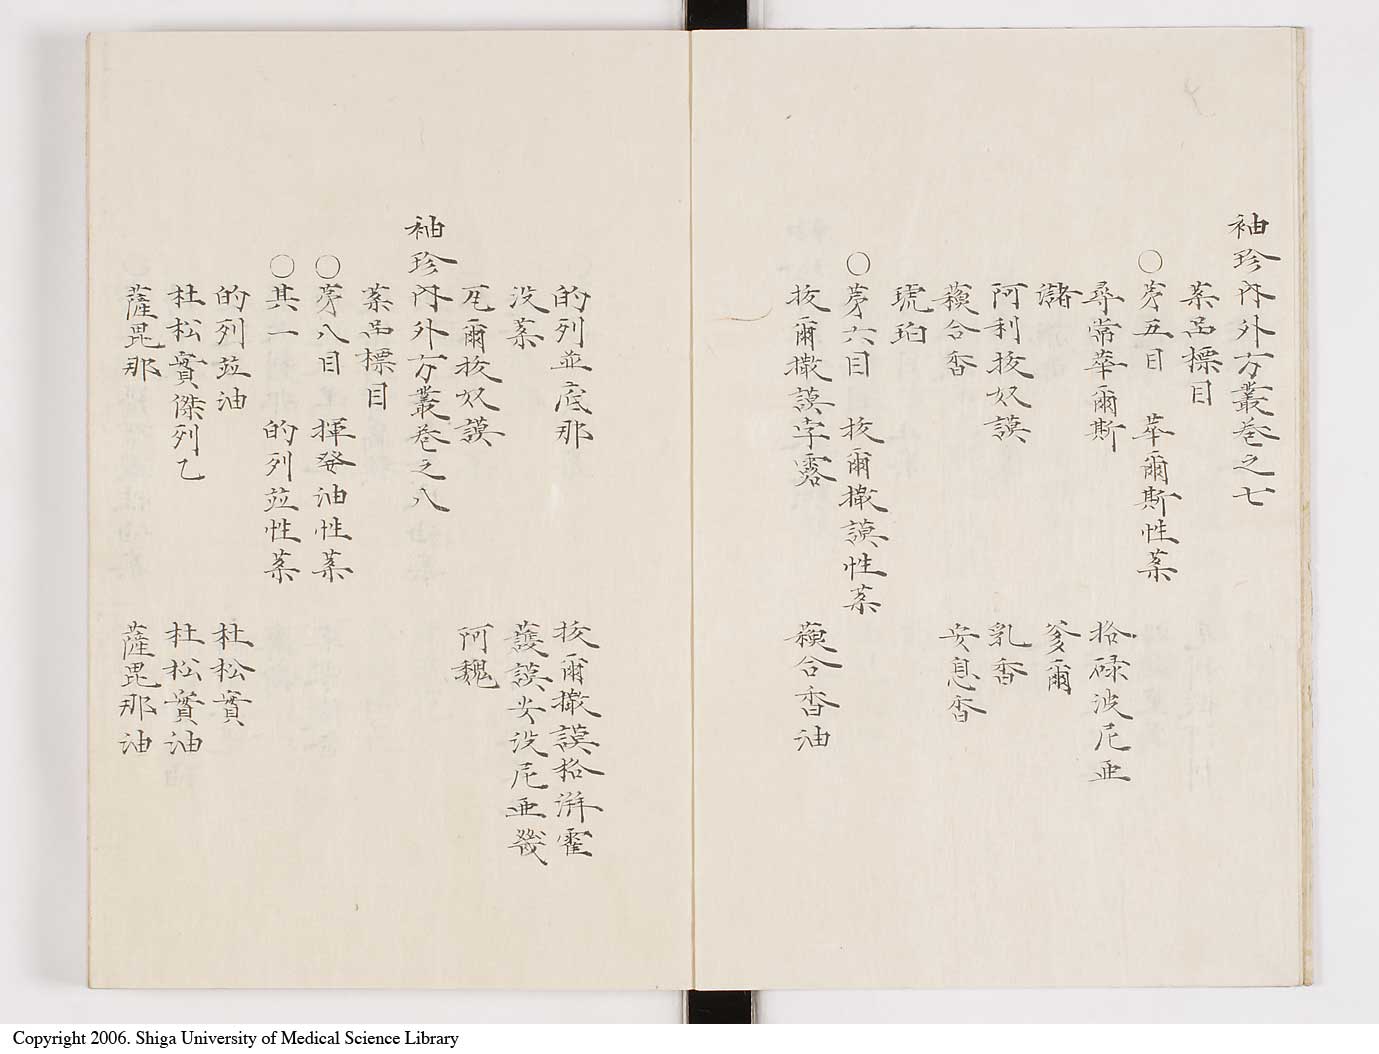 袖珍内外方叢巻之七
薬品標目
○第五目 華爾斯性薬
尋常華爾斯 格碌波尼亜
䗩 爹爾
阿利抜奴謨 乳香
蘓合香 安息香
琥珀
○第六目 抜爾撒謨性薬
抜爾撒謨孛露 蘓合香油
的列並底那 抜爾撒謨格湃霍
没薬 護謨安没尼亜幾
瓦爾抜奴謨 阿魏
袖珍内外方叢巻之八
薬品標目
○第八目 揮発油性薬
○其一 的列並性薬
的列並油 杜松實
杜松實傑列乙 杜松實油
薩毘那 薩毘那油
Copyright 2006. Shiga University of Medical Science Library